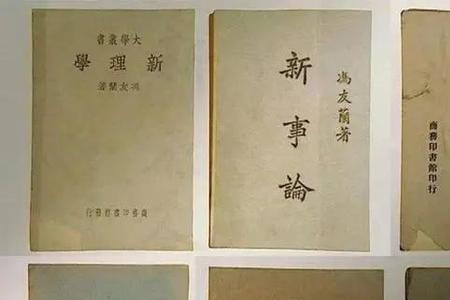 大學叢書
新理學
馮友蘭著
商務印書館發行
馮友蘭著
新事論
商務印書館印行